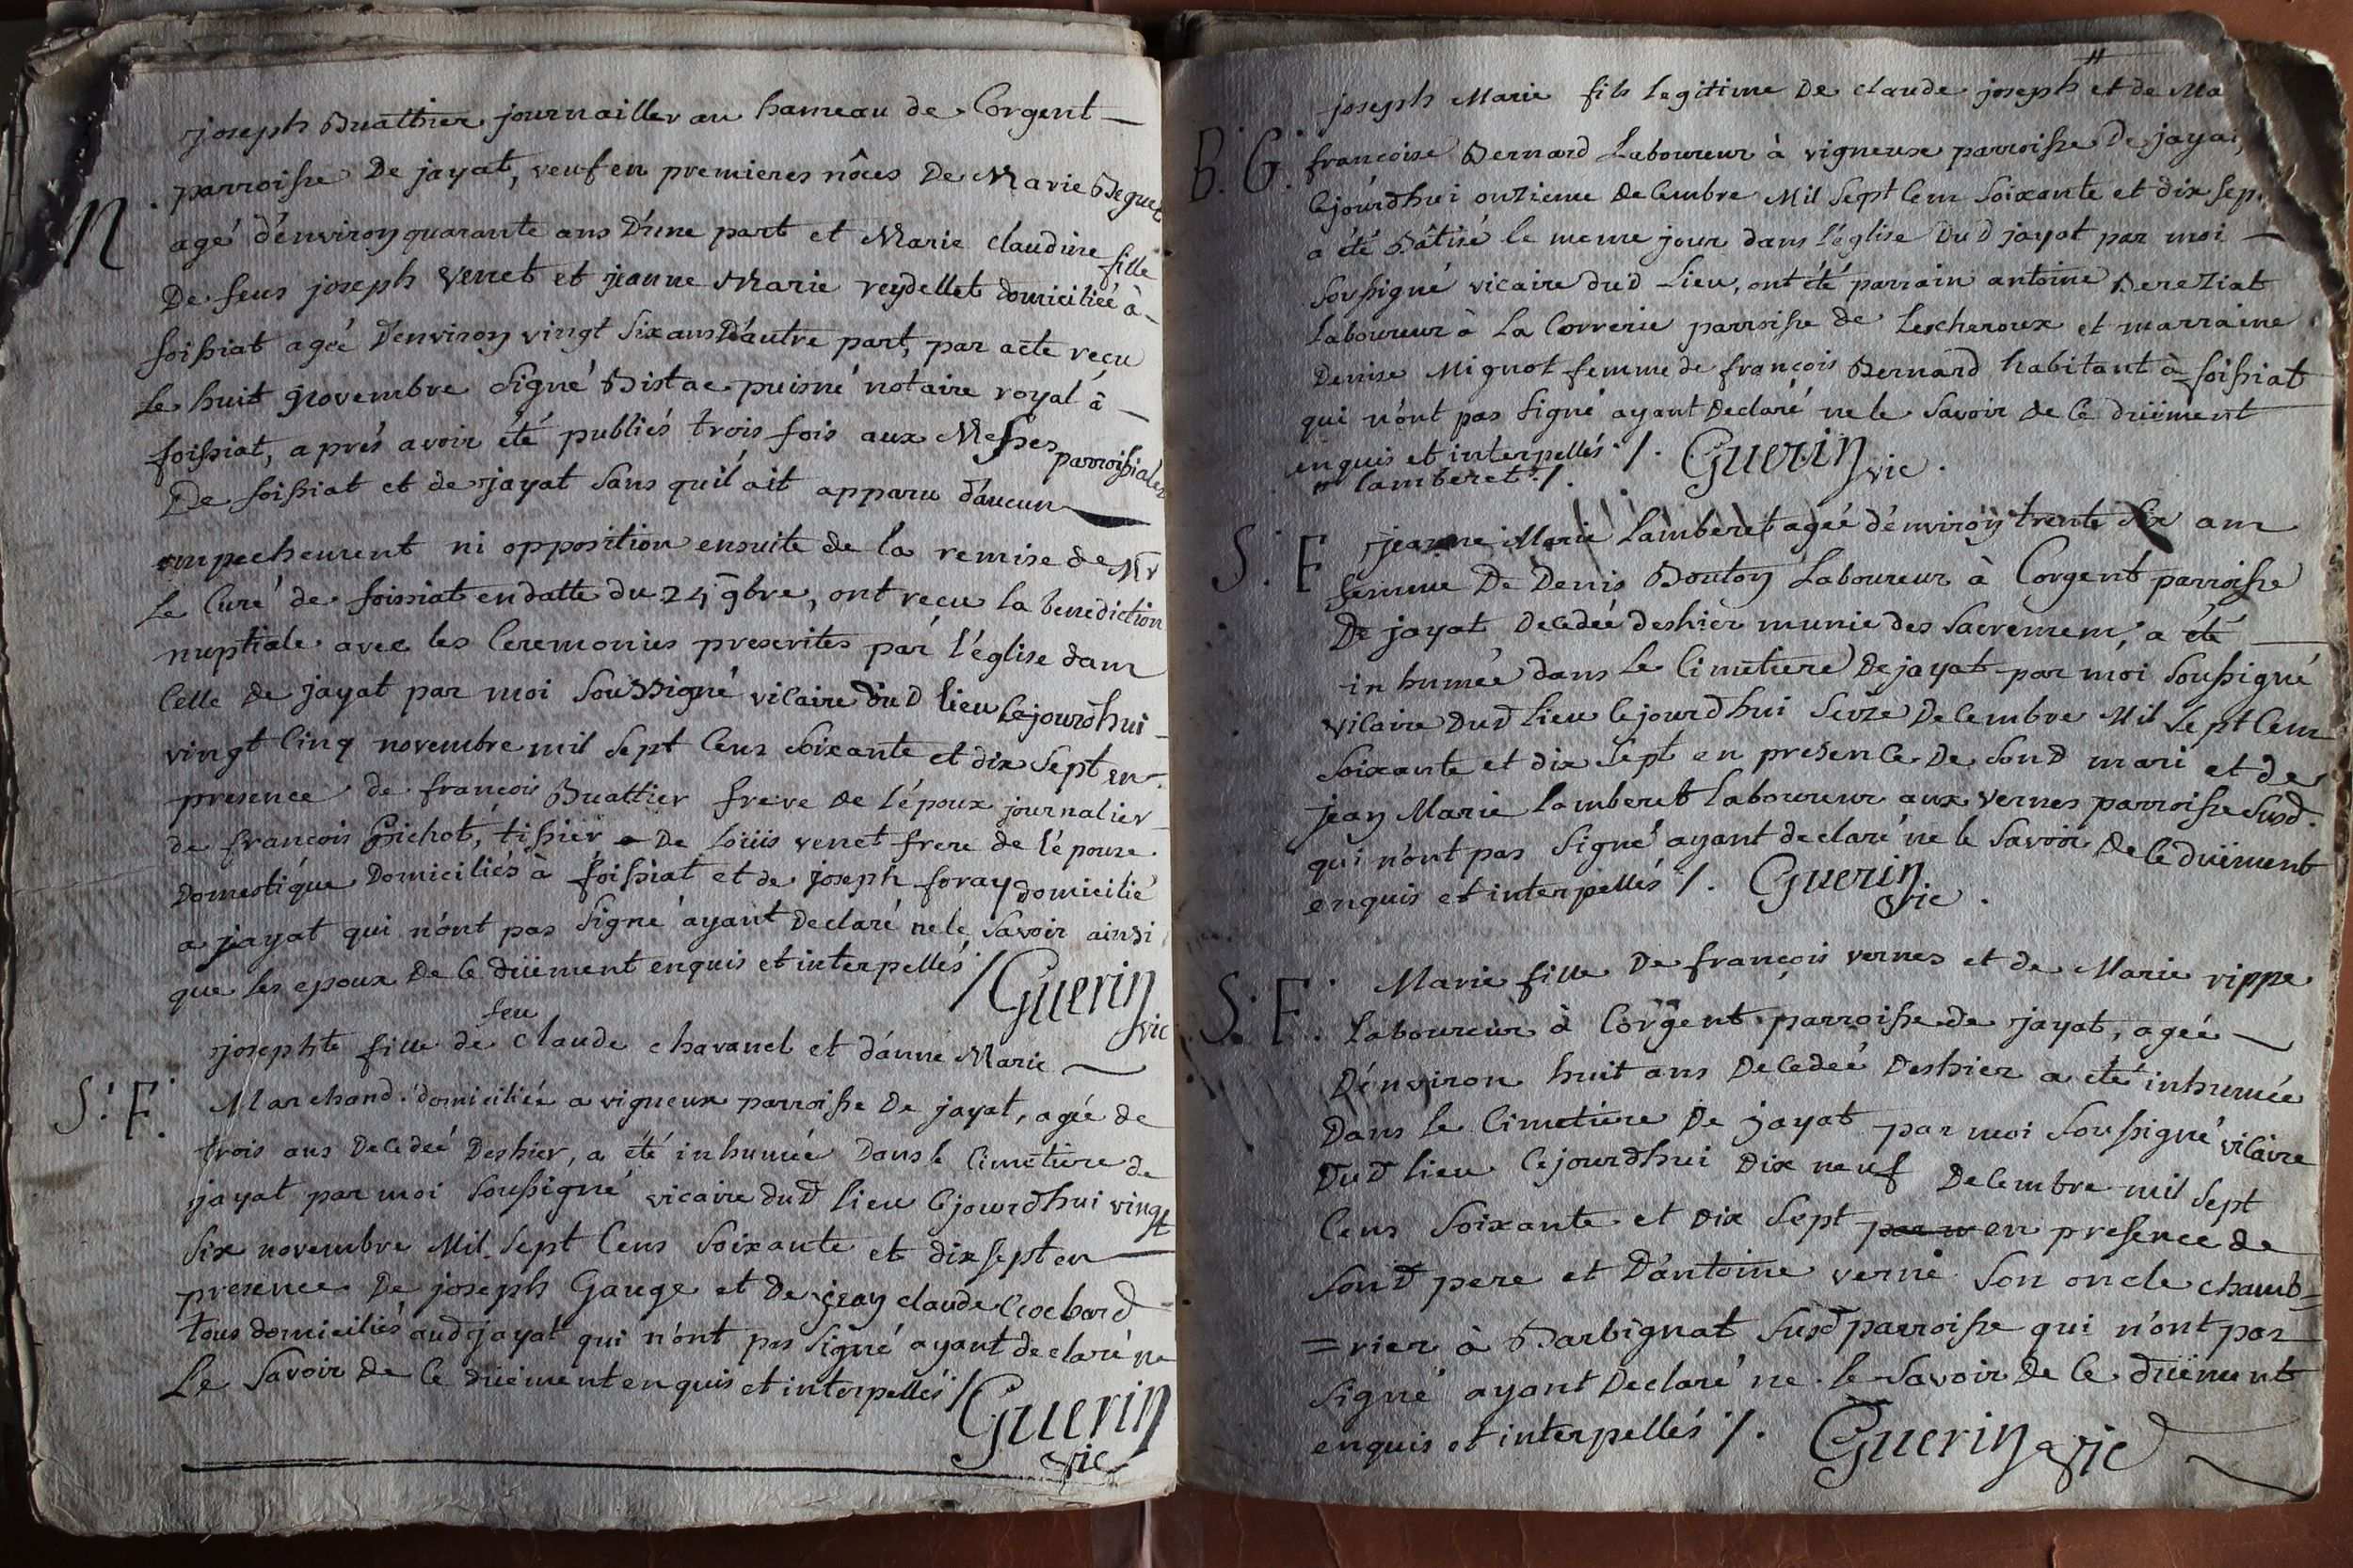 joseph Buathier journaillier au hameau de Corgent
N. parroisse De jayat, veuf en premieres nôces De Marie Beguet
agé d'environ quarante ans D'une part et Marie claudine fille
De feus joseph venet et jeanne Marie reydellet domiciliée à
foissiat agée D'environ vingt six ans D'autre part, par acte reçu
le huit novembre signé Bistac puisné notaire royal à
foissiat, aprés avoir été publiés trois fois aux Messes parroissiales
De foissiat et de jayat sans qu'il ait apparu d'aucun
empechement ni opposition ensuite de la remise de Mr
le Curé de foissiat en datte du 24 9bre, ont recu la benediction
nuptiale avec les Ceremonies prescrites par l'église dans
Celle de jayat par moi soussigné viCaire du D lieu Cejourdhui
vingt Cinq novembre mil sept Cens soixante et dix sept en
presence de francois Buattier frere De l'époux journalier
de francois Pichot, tissier De Loüis venet frere de l'épouse
Domestique Domiciliés à foissiat et de joseph foray domicilié
a jayat qui n'ont pas signé ayant Declaré ne le savoir ainsi
que les epoux De Ce düement enquis et interpellés ./.
Guerin vic
feu
josephte fille de Claude chavanel et d'anne Marie
S: F. Marchand domiciliée a vigneux parroisse De jayat, agée de
trois ans DeCedeé Deshier, a été inhumée Dans le Cimetiere de
jayat par moi soussigné vicaire du D lieu Cejourdhui vingt
six novembre Mil sept Cens soixante et dix sept en
presence De joseph Gauge et De jean claude Clocbard
tous domiciliés aud jayat qui n'ont pas signé ayant declaré ne
Le savoir de Ce düement enquis et interpellés ./.
Guerin
vic
joseph Marie fils legitime De claude joseph # et de Ma
B. G. francoise Bernard Laboureur à vigneux parroisse De jayat,
Cejourdhui onzieme decembre Mil sept Cens soixante et dix sep
a été Bâtisé le meme jour dans l'église Du D jayat par moi
soussigné vicaire dud Lieu, ont été parrain antoine Bereziat
Laboureur à La Correrie parroisse de Lescheroux et marraine
Denise Mignot femme de françois Bernard habitant à foissiat
qui n'ont pas signé ayant Declaré ne le savoir de Ce düement
enquis et interpellés ./. Guerin vic.
# lamberet ./.
S. F jeanne Marie Lamberet agée d'environ trente six ans
femme De Denis Bouton Laboureur à Corgent parroisse
De jayat Decedée deshier munie des sacremens, a été
inhumée dans le Cimetiere De jayat par moi soussigné
viCaire Dud lieu Cejourdhui seize Decembre Mil sept Cens
soixante et dix sept en presence De son D mari et de
jean Marie lamberet laboureur aux vernes parroisse susd.
qui n'ont pas signé ayant declaré ne le savoir De Ce düement
enquis et interpellés ./. Guerin
vic.
Marie fille De françois vernes et de Marie rippe
S. F. Laboureur à Corgent parroisse de jayat, agée
D'environ huit ans DeCedeé Deshier a eté inhumée
Dans le Cimetiere De jayat par moi soussigné viCaire
Dud lieu Cejourdhui Dix neuf DeCembre mil sept
Cens soixante et Dix sept en presence de
son D pere et D'antoine verne son oncle chamb=
=rier à Barbignat susd parroisse qui n'ont pas
signé ayant Declaré ne le savoir De Ce düement
enquis et interpellés ./. Guerin vic